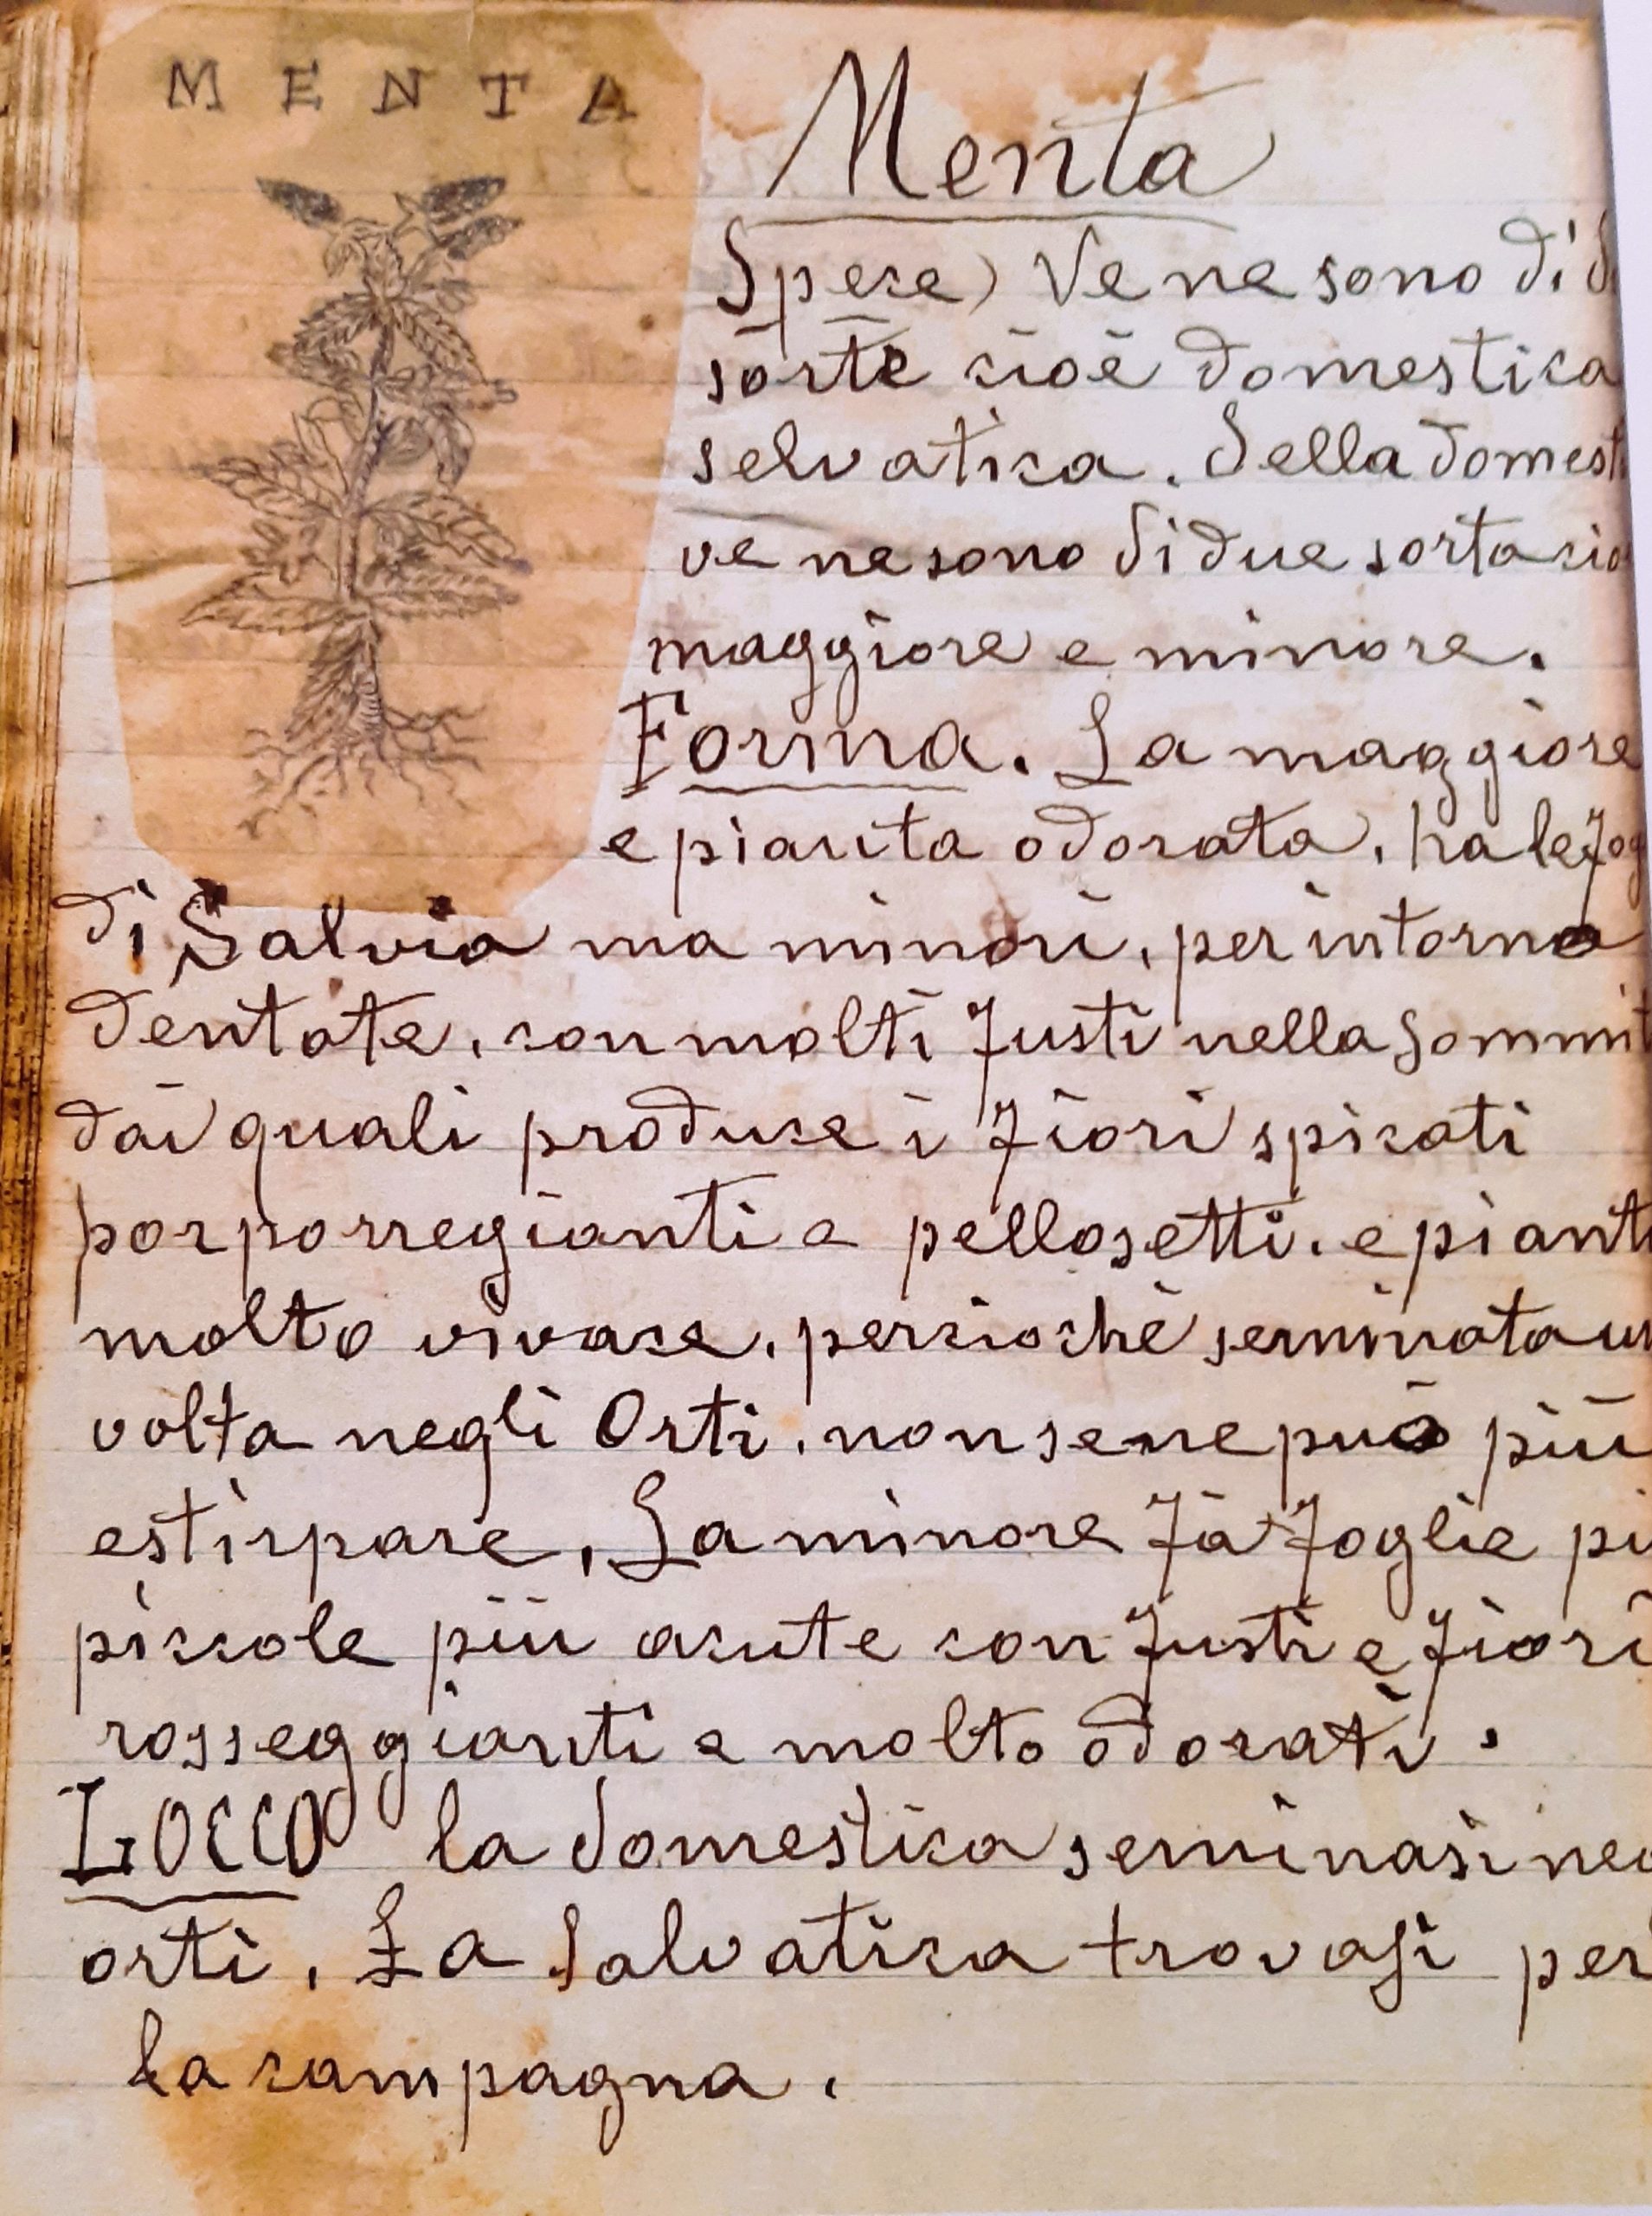 MENTA
Menta
Spece) Ve ne sono di
sorte cioè domestica
selvatica. Della domest
ve ne sono di due sorta cio
maggiore e minore.
Forma. La maggiore
e pianta odorata, ha le fog
di Salvia ma minori, per intorno
dentate, con molti fusti nella sommit
dai quali produce i fiori spicati
porporregianti e pellosetti. e piant
molto vivace, percioché seminata un
volta negli Orti, non se ne può più
estirpare, La minore fà foglie pi
piccole più acute con fusti e fiori
rosseggianti e molto odorati.
Locco la domestica seminasi neg
orti, La Salvatica trovasi per
la campagna.